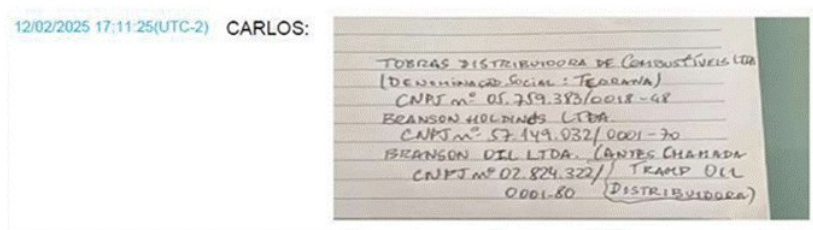 12/02/2025 17:11:25(UTC-2) CARLOS:
TOBRAS DISTRIBUIDORA DE COMBUSTÍVEIS LTDA
(DENOMINAÇÃO SOCIAL: TERRANA)
CNPJ nº 05.759.383/0018-48
BRANSON HOLDINGS LTDA
CNPJ nº 57.149.032/0001-70
BRANSON OIL LTDA. (ANTES CHAMADA
CNPJ nº 02.824.322/ TRAMP OIL
0001-80 DISTRIBUIDORA)